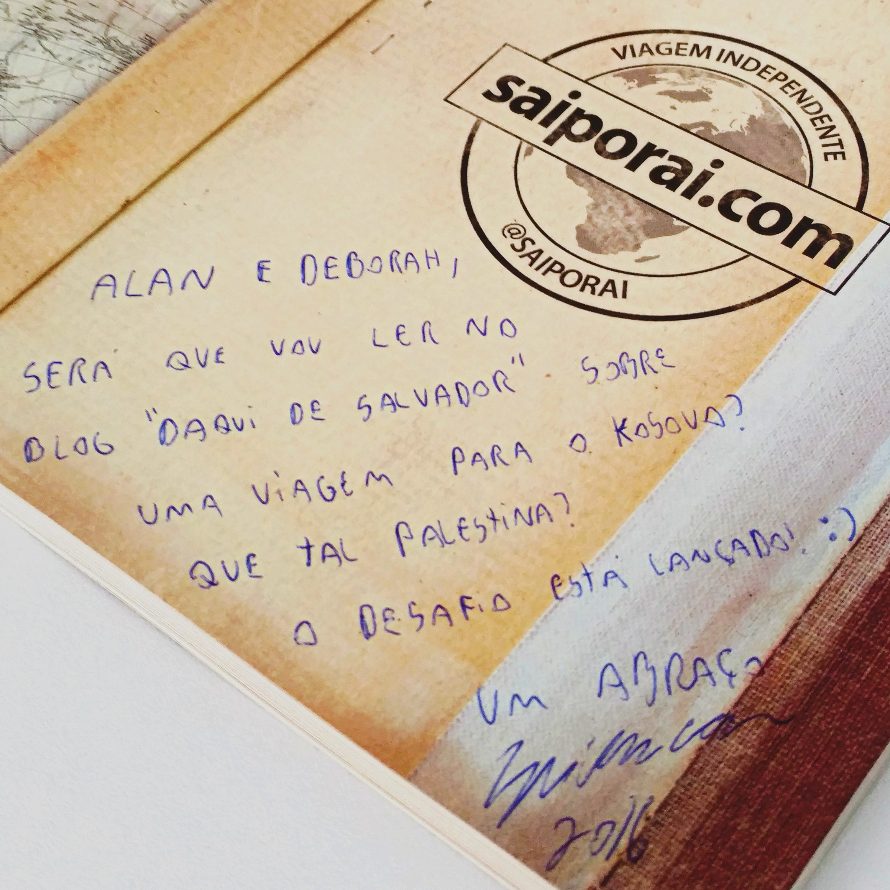 VIAGEM INDEPENDENTE
saiporai.com
@SAIPORAI
ALAN E DEBORAH,
SERÁ QUE VOU LER NO
BLOG "DAQUI DE SALVADOR" SOBRE
UMA VIAGEM PARA O KOSOVO?
QUE TAL PALESTINA?
O DESAFIO ESTÁ LANÇADO! :)
UM ABRAÇO
2016